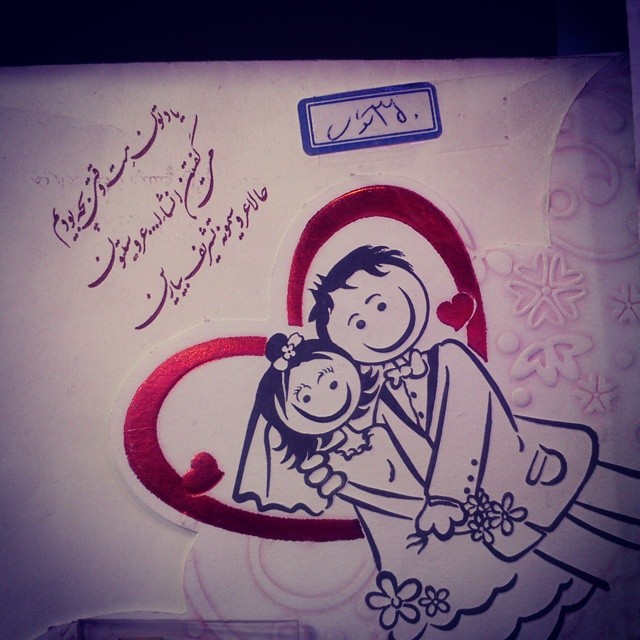 یادتون هست وقتی بچه بودیم
می گفتین انشاا... عروسیتون
حالا عروسیمونه تشریف بیارین
۳۵۰ تومان